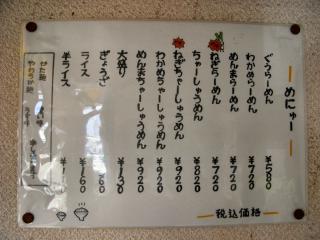 めにゅー
ぐうらーめん ¥580
わかめらーめん ¥720
めんまらーめん ¥720
ねぎらーめん ¥720
ちゃーしゅうめん ¥820
ねぎちゃーしゅうめん ¥920
わかめちゃーしゅうめん ¥920
めんまちゃーしゅうめん ¥920
大盛り ¥130
ぎょうざ
ライス ¥160
半ライス
税込価格